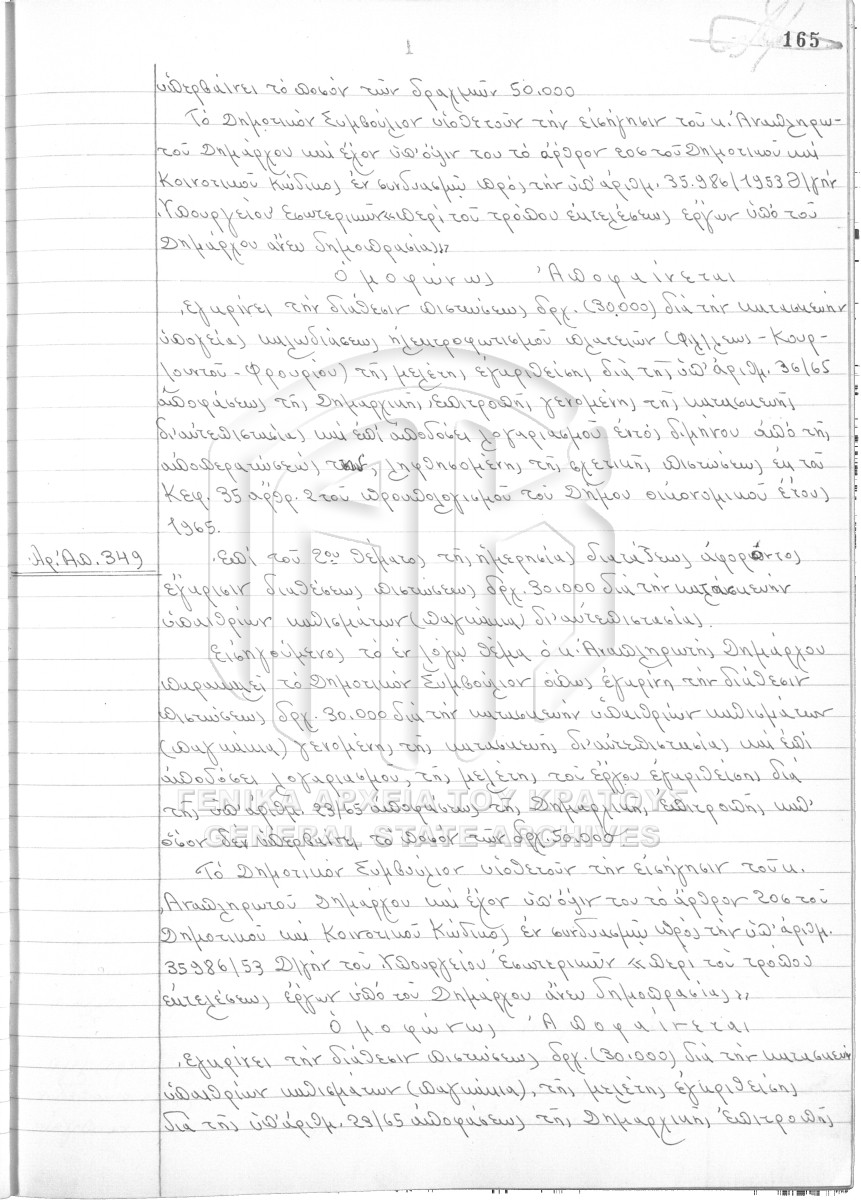 165
1
ὑπερβαίνει τὸ ποσὸν τῶν δραχμῶν 50.000
Τὸ Δημοτικὸν Συμβούλιον υἱοθετοῦν τὴν εἰσήγησιν τοῦ κ. Ἀναπληρω-
τοῦ Δημάρχου καὶ ἔχον ὑπ' ὄψιν του τὸ ἄρθρον 206 τοῦ Δημοτικοῦ καὶ
Κοινοτικοῦ Κώδικος ἐν συνδυασμῷ πρὸς τὴν ὑπ' ἀριθμ. 35.986/1953 Δ/γὴν
Ὑπουργείου Ἐσωτερικῶν «περὶ τοῦ τρόπου ἐκτελέσεως ἔργων ὑπὸ τοῦ
Δημάρχου ἄνευ δημοπρασίας»
Ὁμοφώνως Ἀποφαίνεται
Ἐγκρίνει τὴν διάθεσιν πιστώσεως δρχ. (30.000) διὰ τὴν κατασκευὴν
ὑπογείας καλωδιάσεως ἠλεκτροφωτισμοῦ πλατειῶν (Φιλλεως - Κουρ-
μουτοῦ - Φρουρίου) τῆς μελέτης ἐγκριθείσης διὰ τῆς ὑπ' ἀριθμ. 36/65
ἀποφάσεως τῆς Δημαρχικῆς Ἐπιτροπῆς γενομένης τῆς κατασκευῆς
δι' αὐτεπιστασίας καὶ ἐπὶ ἀποδόσει λογαριασμοῦ ἐντὸς διμήνου ἀπὸ τῆς
ἀποπερατώσεώς των, ληφθησομένης τῆς σχετικῆς πιστώσεως ἐκ τοῦ
Κεφ. 35 ἄρθρ. 2 τοῦ προυπολογισμοῦ τοῦ Δήμου οἰκονομικοῦ ἔτους
1965.
Ἀρ. Ἀπ. 349
Ἐπὶ τοῦ 2ου θέματος τῆς ἡμερησίας διατάξεως ἀφορῶντος
ἔγκρισιν διαθέσεως πιστώσεως δρχ. 30.000 διὰ τὴν κατασκευὴν
ὑπαιθρίων καθισμάτων (παγκάκια) δι' αὐτεπιστασίας.
Εἰσηγούμενος τὸ ἐν λόγῳ θέμα ὁ κ. Ἀναπληρωτὴς Δημάρχου
παρακαλεῖ τὸ Δημοτικὸν Συμβούλιον ὅπως ἐγκρίνῃ τὴν διάθεσιν
πιστώσεως δρχ. 30.000 διὰ τὴν κατασκευὴν ὑπαιθρίων καθισμάτων
(παγκάκια) γενομένης τῆς κατασκευῆς δι' αὐτεπιστασίας καὶ ἐπὶ
ἀποδόσει λογαριασμοῦ, τῆς μελέτης τοῦ ἔργου ἐγκριθείσης διὰ
τῆς ὑπ' ἀριθμ. 29/65 ἀποφάσεως τῆς Δημαρχικῆς Ἐπιτροπῆς καθ'
ὅσον δὲν ὑπερβαίνει τὸ ποσὸν τῶν δρχ. 50.000
ΓΕΝΙΚΑ ΑΡΧΕΙΑ ΤΟΥ ΚΡΑΤΟΥΣ
GENERAL STATE ARCHIVES
Τὸ Δημοτικὸν Συμβούλιον υἱοθετοῦν τὴν εἰσήγησιν τοῦ κ.
Ἀναπληρωτοῦ Δημάρχου καὶ ἔχον ὑπ' ὄψιν του τὸ ἄρθρον 206 τοῦ
Δημοτικοῦ καὶ Κοινοτικοῦ Κώδικος ἐν συνδυασμῷ πρὸς τὴν ὑπ' ἀριθμ.
35986/53 Δ/γὴν τοῦ Ὑπουργείου Ἐσωτερικῶν «περὶ τοῦ τρόπου
ἐκτελέσεως ἔργων ὑπὸ τοῦ Δημάρχου ἄνευ δημοπρασίας»
Ὁμοφώνως Ἀποφαίνεται
Ἐγκρίνει τὴν διάθεσιν πιστώσεως δρχ. (30.000) διὰ τὴν κατασκευὴν
ὑπαιθρίων καθισμάτων (παγκάκια), τῆς μελέτης ἐγκριθείσης
διὰ τῆς ὑπ' ἀριθμ. 29/65 ἀποφάσεως τῆς Δημαρχικῆς Ἐπιτροπῆς